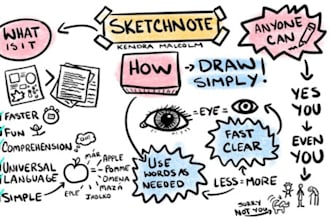 WHAT
IS IT
SKETCHNOTE
KENDRA MALCOLM
ANYONE
CAN
HOW
DRAW
SIMPLY!
FASTER
FUN
COMPREHENSION
UNIVERSAL
LANGUAGE
SIMPLE
MÄR
APPLE
POMME
OMENA
MAZĀ
JABLKO
EPLE
=EYE=
FAST
CLEAR
USE
WORDS AS
NEEDED
LESS=MORE
YES
YOU
EVEN
YOU
SORRY
NOT YOU